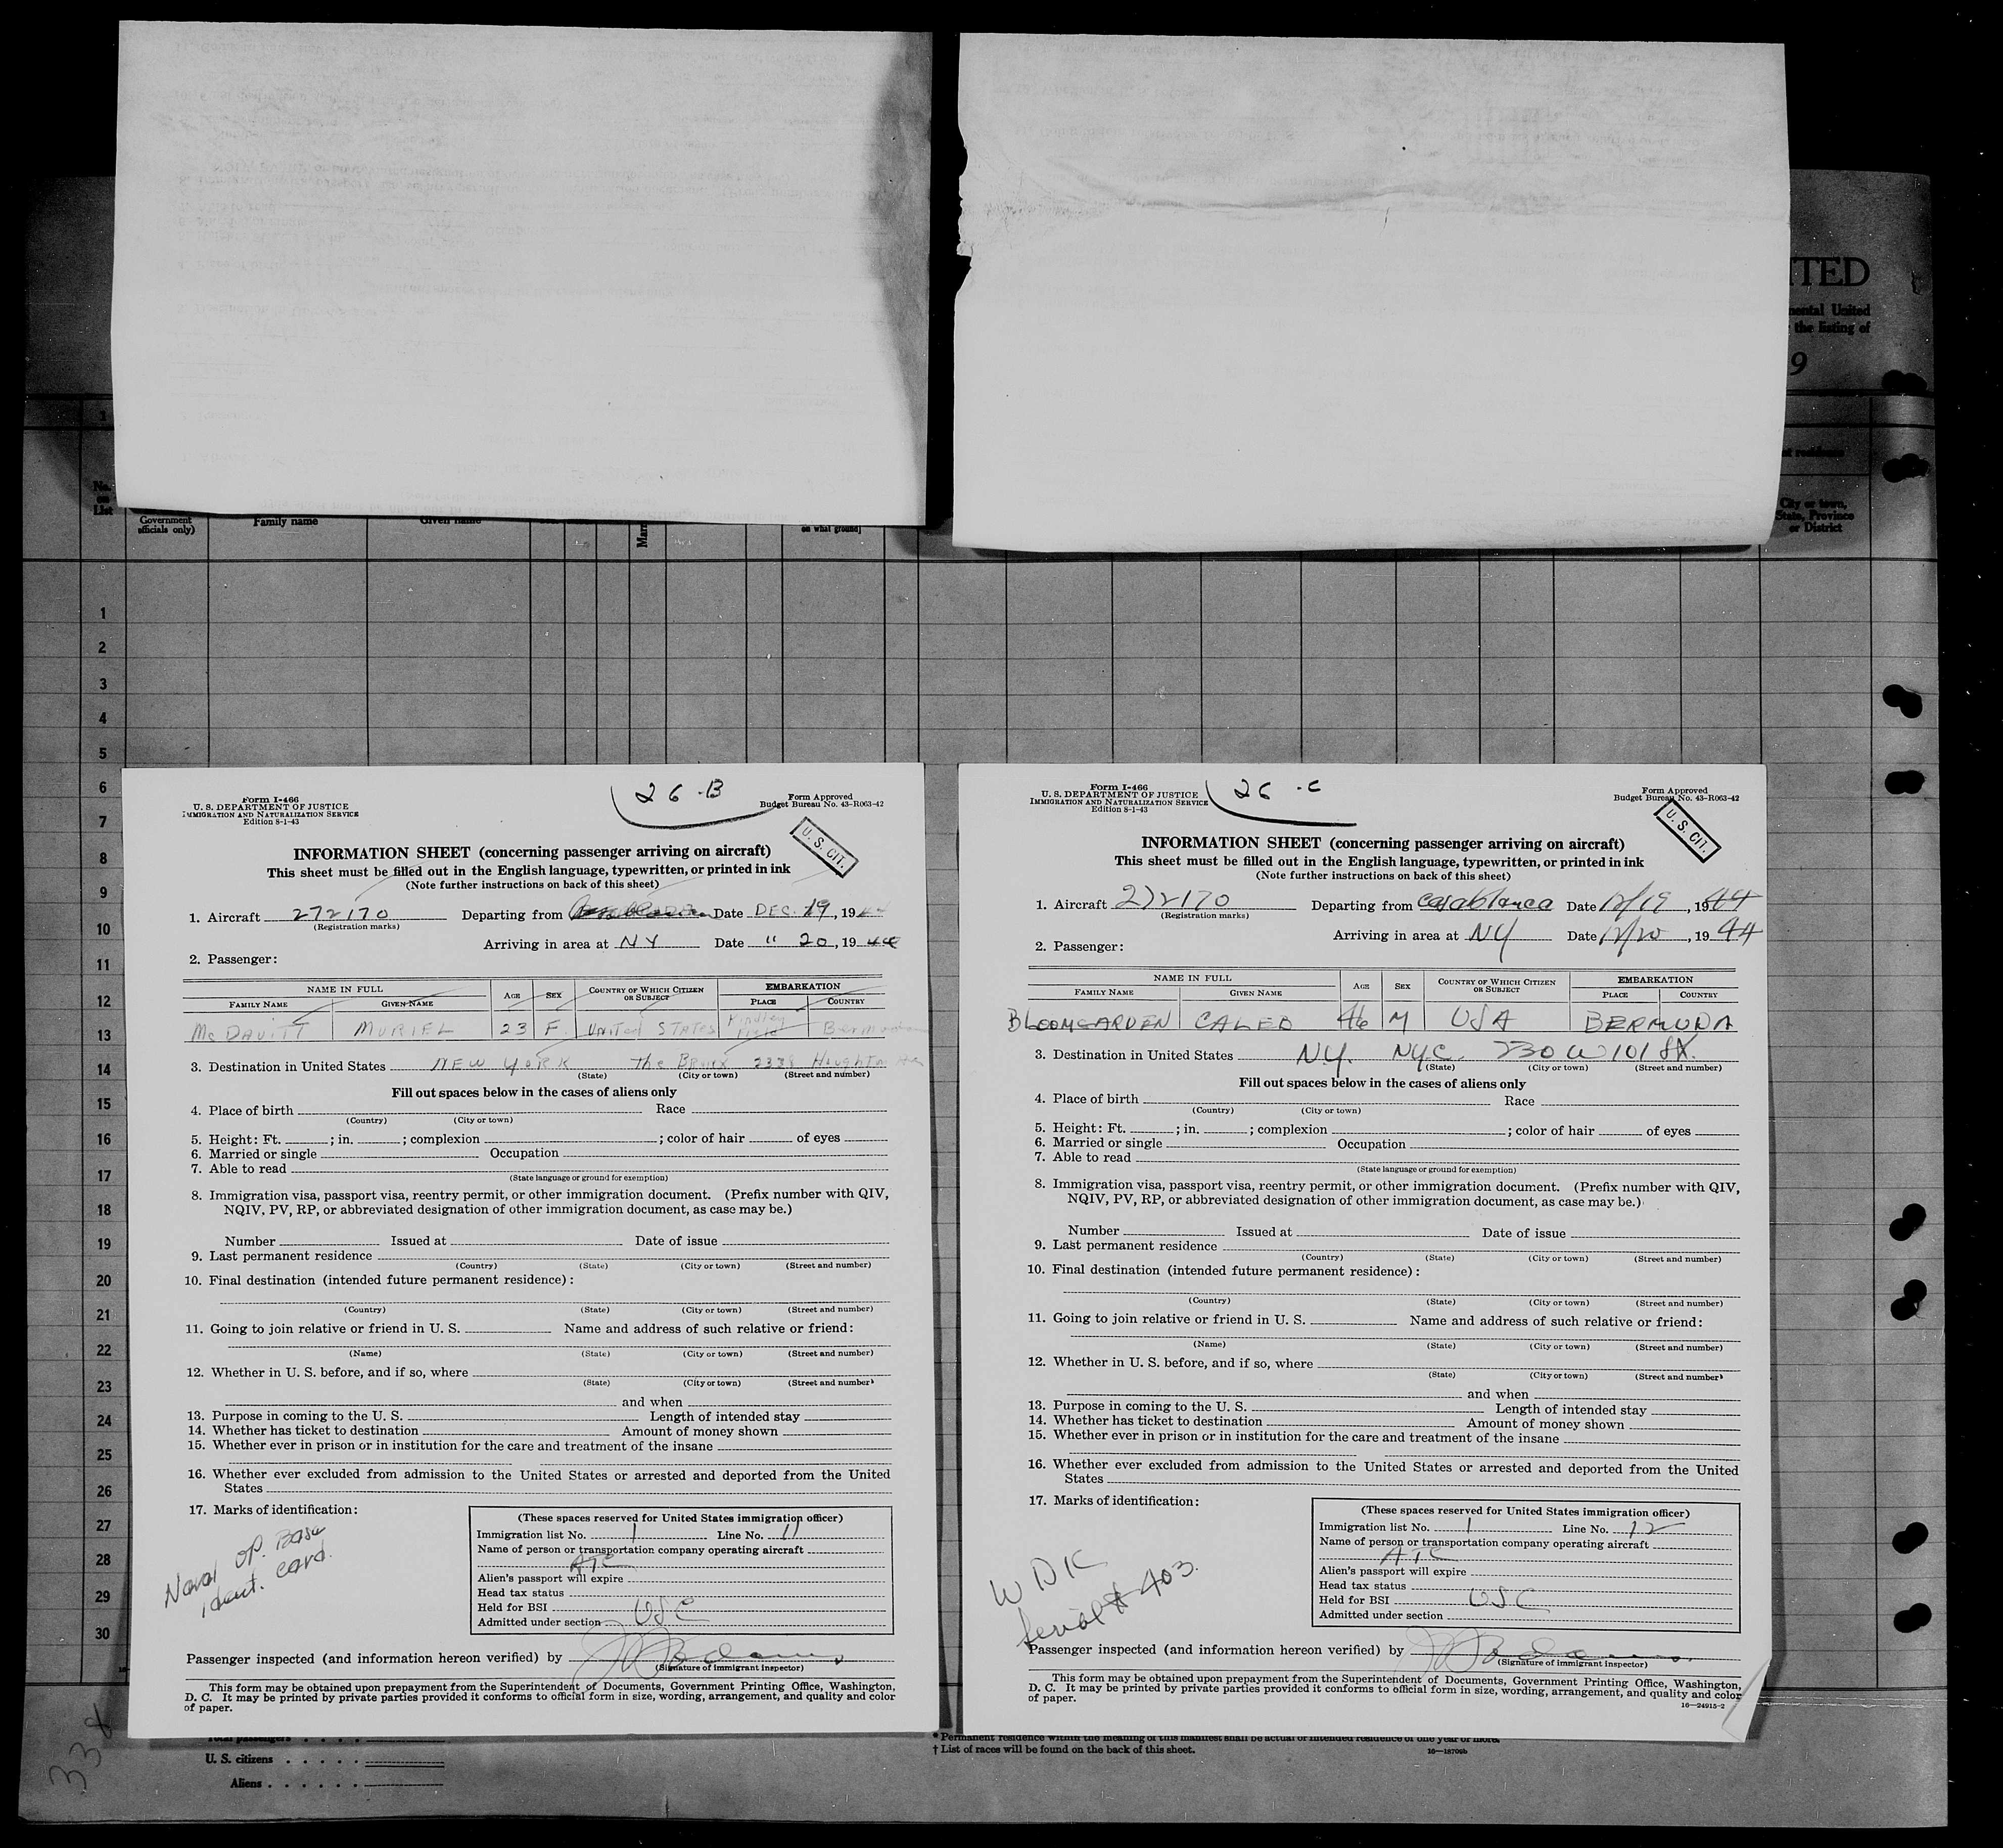 ITED
nental United
the listing of
9
1
No.
on
List
Government
officials only)
Family name
Given name
on what ground]
City or town,
State, Province
or District
1
2
3
4
5
6
7
8
9
10
11
12
13
14
15
16
17
18
19
20
21
22
23
24
25
26
27
28
29
30
26-B
Form I-466
U. S. DEPARTMENT OF JUSTICE
IMMIGRATION AND NATURALIZATION SERVICE
Edition 8-1-43
Form Approved
Budget Bureau No. 43-R063-42
U. S. CIT.
INFORMATION SHEET (concerning passenger arriving on aircraft)
This sheet must be filled out in the English language, typewritten, or printed in ink
(Note further instructions on back of this sheet)
1. Aircraft 272170 Departing from Date DEC. 19, 1944
(Registration marks)
Arriving in area at NY Date " 20, 1944
2. Passenger:
NAME IN FULL AGE SEX COUNTRY OF WHICH CITIZEN OR SUBJECT EMBARKATION
FAMILY NAME GIVEN NAME PLACE COUNTRY
Mc DAVITT MURIEL 23 F. UNITED STATES Kindley Field Bermuda
3. Destination in United States NEW YORK The Bronx 2338 Houghton Ave
(State) (City or town) (Street and number)
Fill out spaces below in the cases of aliens only
4. Place of birth Race
(Country) (City or town)
5. Height: Ft. ; in. ; complexion ; color of hair of eyes
6. Married or single Occupation
7. Able to read
(State language or ground for exemption)
8. Immigration visa, passport visa, reentry permit, or other immigration document. (Prefix number with QIV,
NQIV, PV, RP, or abbreviated designation of other immigration document, as case may be.)
Number Issued at Date of issue
9. Last permanent residence
(Country) (State) (City or town) (Street and number)
10. Final destination (intended future permanent residence):
(Country) (State) (City or town) (Street and number)
11. Going to join relative or friend in U. S. Name and address of such relative or friend:
(Name) (State) (City or town) (Street and number)
12. Whether in U. S. before, and if so, where
(State) (City or town) (Street and number)
and when
13. Purpose in coming to the U. S. Length of intended stay
14. Whether has ticket to destination Amount of money shown
15. Whether ever in prison or in institution for the care and treatment of the insane
16. Whether ever excluded from admission to the United States or arrested and deported from the United
States
17. Marks of identification:
Naval OP. Base
ident. card.
(These spaces reserved for United States immigration officer)
Immigration list No. 1 Line No. 11
Name of person or transportation company operating aircraft
ATC
Alien's passport will expire
Head tax status
Held for BSI USC
Admitted under section
Passenger inspected (and information hereon verified) by
(Signature of immigrant inspector)
This form may be obtained upon prepayment from the Superintendent of Documents, Government Printing Office, Washington,
D. C. It may be printed by private parties provided it conforms to official form in size, wording, arrangement, and quality and color
of paper.
26-C
Form I-466
U. S. DEPARTMENT OF JUSTICE
IMMIGRATION AND NATURALIZATION SERVICE
Edition 8-1-43
Form Approved
Budget Bureau No. 43-R063-42
U. S. CIT.
INFORMATION SHEET (concerning passenger arriving on aircraft)
This sheet must be filled out in the English language, typewritten, or printed in ink
(Note further instructions on back of this sheet)
1. Aircraft 272170 Departing from Casablanca Date 12/19, 1944
(Registration marks)
Arriving in area at NY Date 12/20, 1944
2. Passenger:
NAME IN FULL AGE SEX COUNTRY OF WHICH CITIZEN OR SUBJECT EMBARKATION
FAMILY NAME GIVEN NAME PLACE COUNTRY
BLOOMGARDEN CALEB 46 M USA BERMUDA
3. Destination in United States NY. NYC. 230 W 101 St.
(State) (City or town) (Street and number)
Fill out spaces below in the cases of aliens only
4. Place of birth Race
(Country) (City or town)
5. Height: Ft. ; in. ; complexion ; color of hair of eyes
6. Married or single Occupation
7. Able to read
(State language or ground for exemption)
8. Immigration visa, passport visa, reentry permit, or other immigration document. (Prefix number with QIV,
NQIV, PV, RP, or abbreviated designation of other immigration document, as case may be.)
Number Issued at Date of issue
9. Last permanent residence
(Country) (State) (City or town) (Street and number)
10. Final destination (intended future permanent residence):
(Country) (State) (City or town) (Street and number)
11. Going to join relative or friend in U. S. Name and address of such relative or friend:
(Name) (State) (City or town) (Street and number)
12. Whether in U. S. before, and if so, where
(State) (City or town) (Street and number)
and when
13. Purpose in coming to the U. S. Length of intended stay
14. Whether has ticket to destination Amount of money shown
15. Whether ever in prison or in institution for the care and treatment of the insane
16. Whether ever excluded from admission to the United States or arrested and deported from the United
States
17. Marks of identification:
WDK
Serial # 403.
(These spaces reserved for United States immigration officer)
Immigration list No. 1 Line No. 12
Name of person or transportation company operating aircraft
ATC
Alien's passport will expire
Head tax status
Held for BSI USC
Admitted under section
Passenger inspected (and information hereon verified) by
(Signature of immigrant inspector)
This form may be obtained upon prepayment from the Superintendent of Documents, Government Printing Office, Washington,
D. C. It may be printed by private parties provided it conforms to official form in size, wording, arrangement, and quality and color
of paper.
16—24915-2
338
Total passengers
U. S. citizens
Aliens
* Permanent residence within the meaning of this manifest shall be actual or intended residence of one year or more.
† List of races will be found on the back of this sheet.
16—18706b